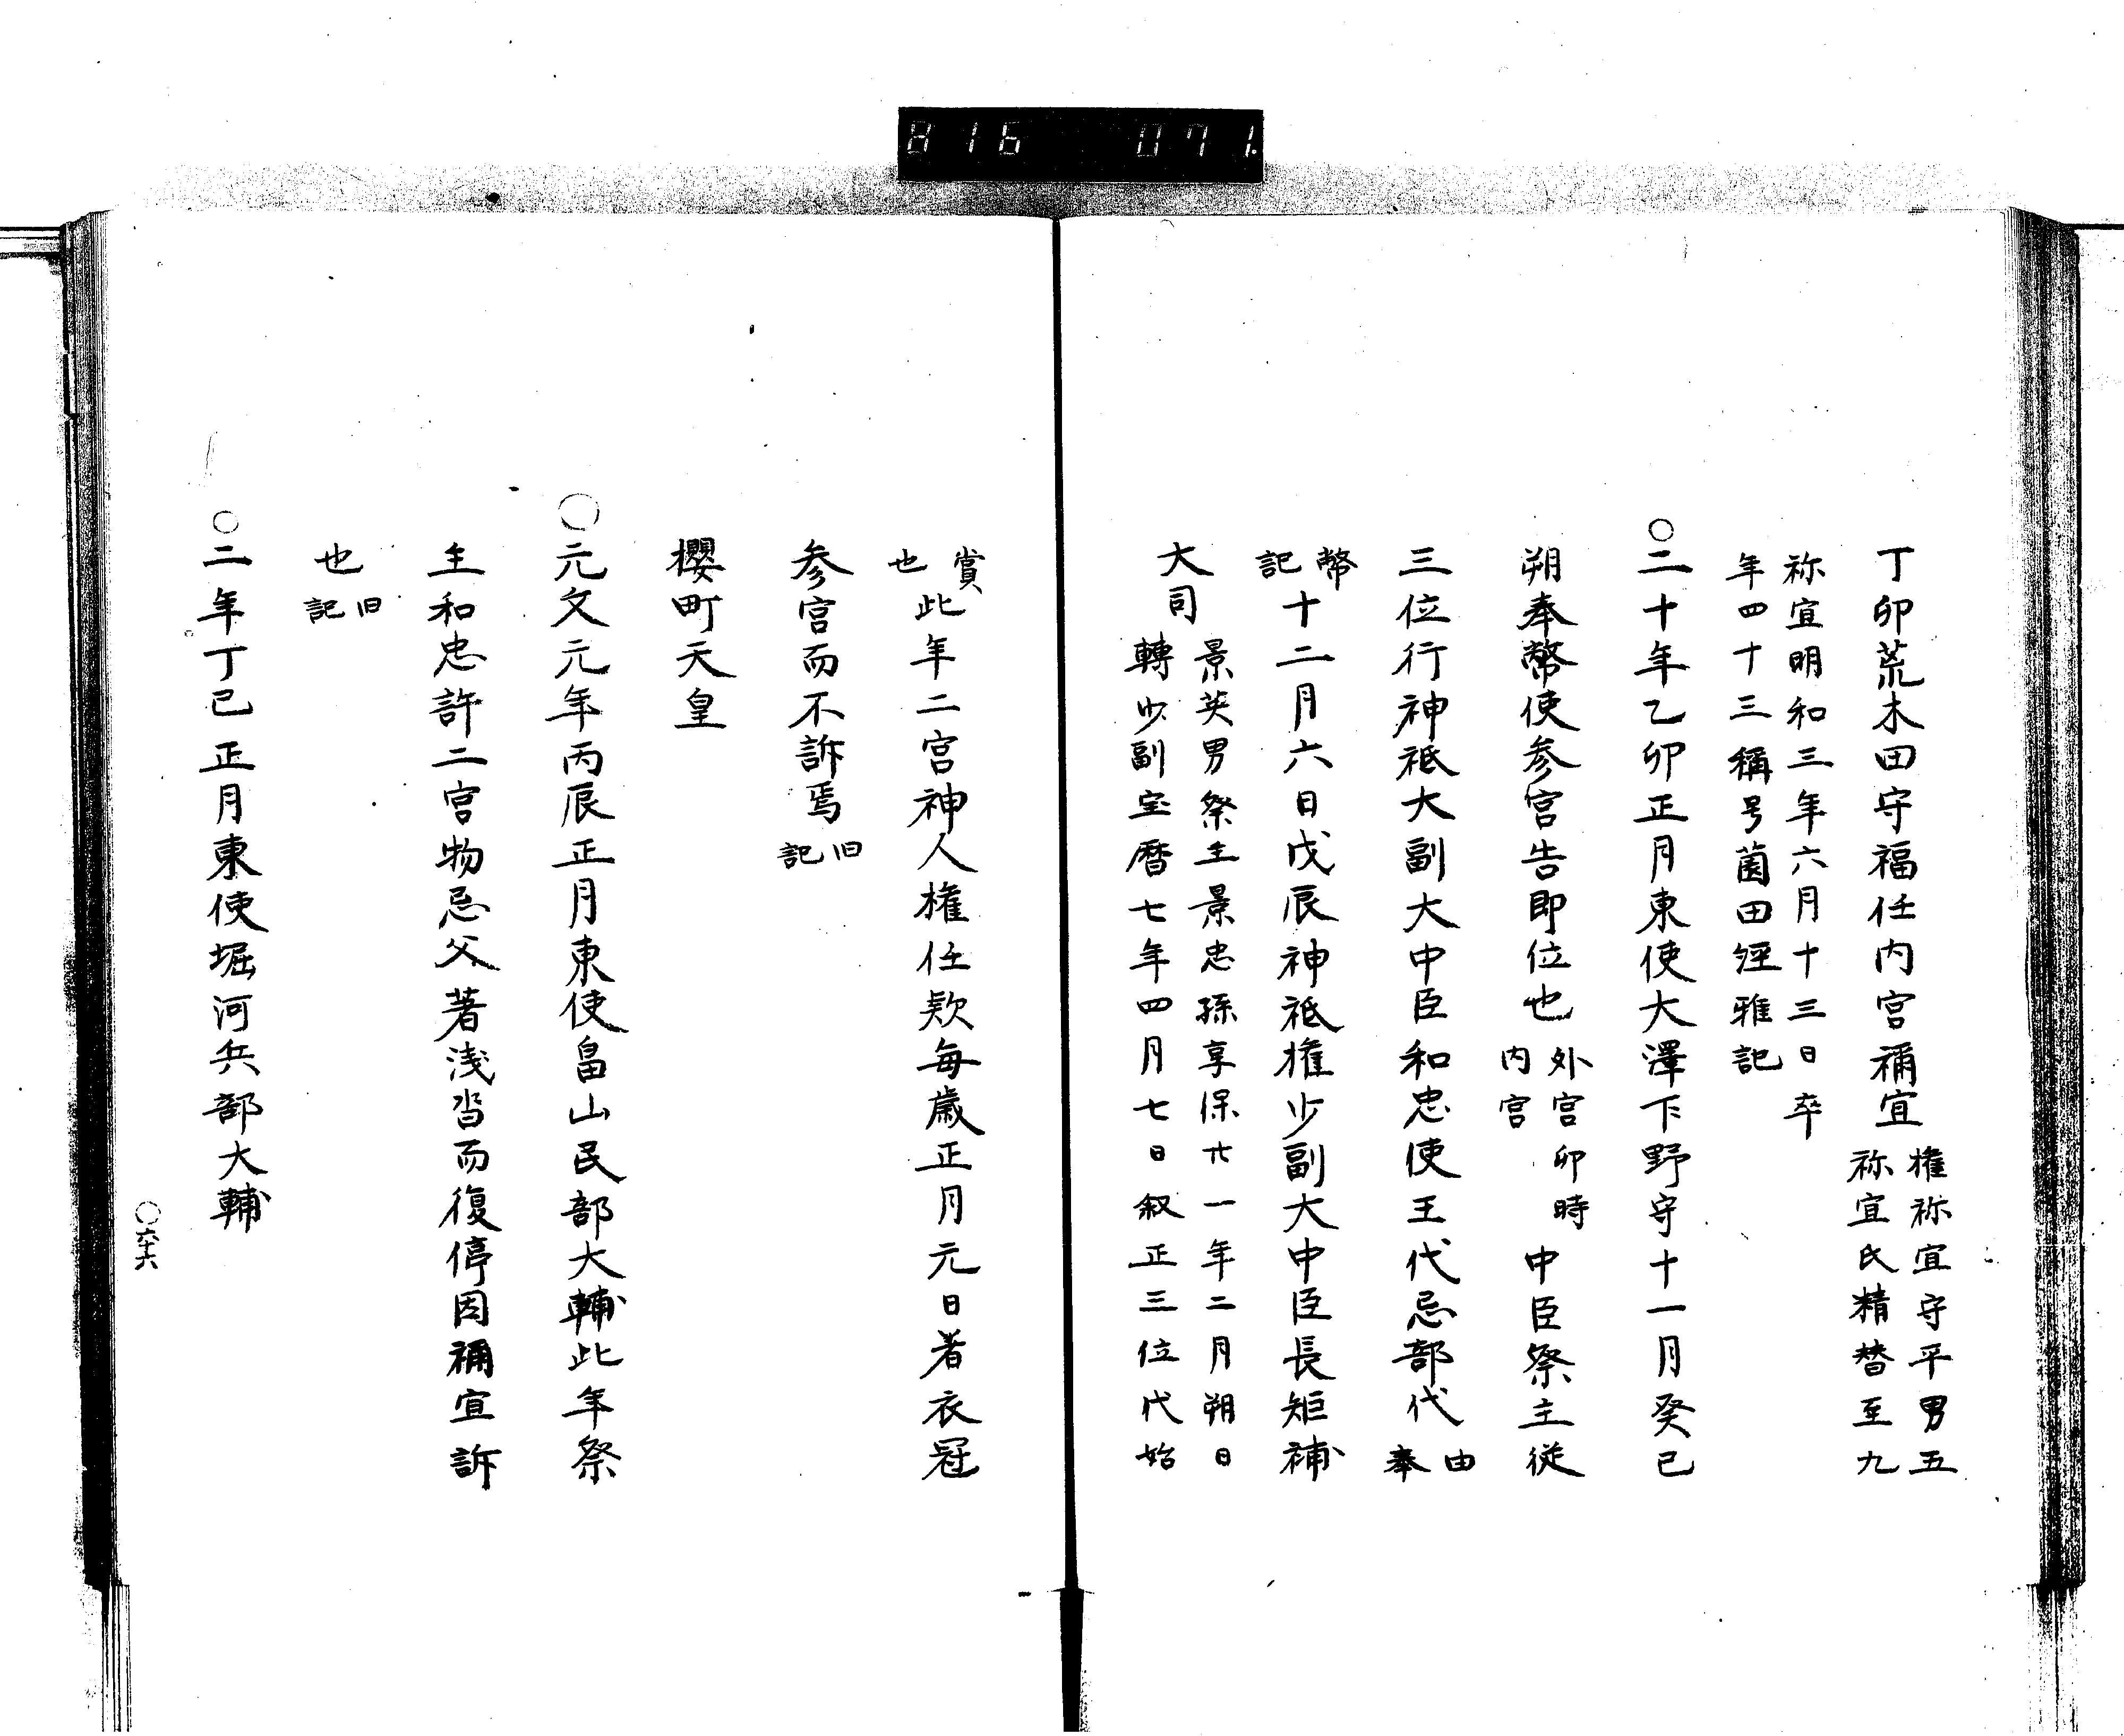 816 071.
丁卯荒木田守福任内宮禰宜 権祢宜守平男五
祢宜氏精替至九
祢宜明和三年六月十三日卒
年四十三稱号薗田経雅記
○二十年乙卯正月東使大澤下野守十一月癸巳
朔奉幣使参宮告即位也 外宮卯時
内宮 中臣祭主従
三位行神祇大副大中臣和忠使王代忌部代 由
奉
幣
記 十二月六日戊辰神祇権少副大中臣長矩補
大司 景英男祭主景忠孫享保廿一年二月朔日
轉少副宝暦七年四月七日叙正三位代始
賞
也 此年二宮神人権任欵毎歳正月元日着衣冠
参宮而不訴焉 旧
記
櫻町天皇
○元文元年丙辰正月東使畠山民部大輔此年祭
主和忠許二宮物忌父著浅沓而復停因禰宜訴
也 旧
記
○二年丁巳正月東使堀河兵部大輔
○六十六